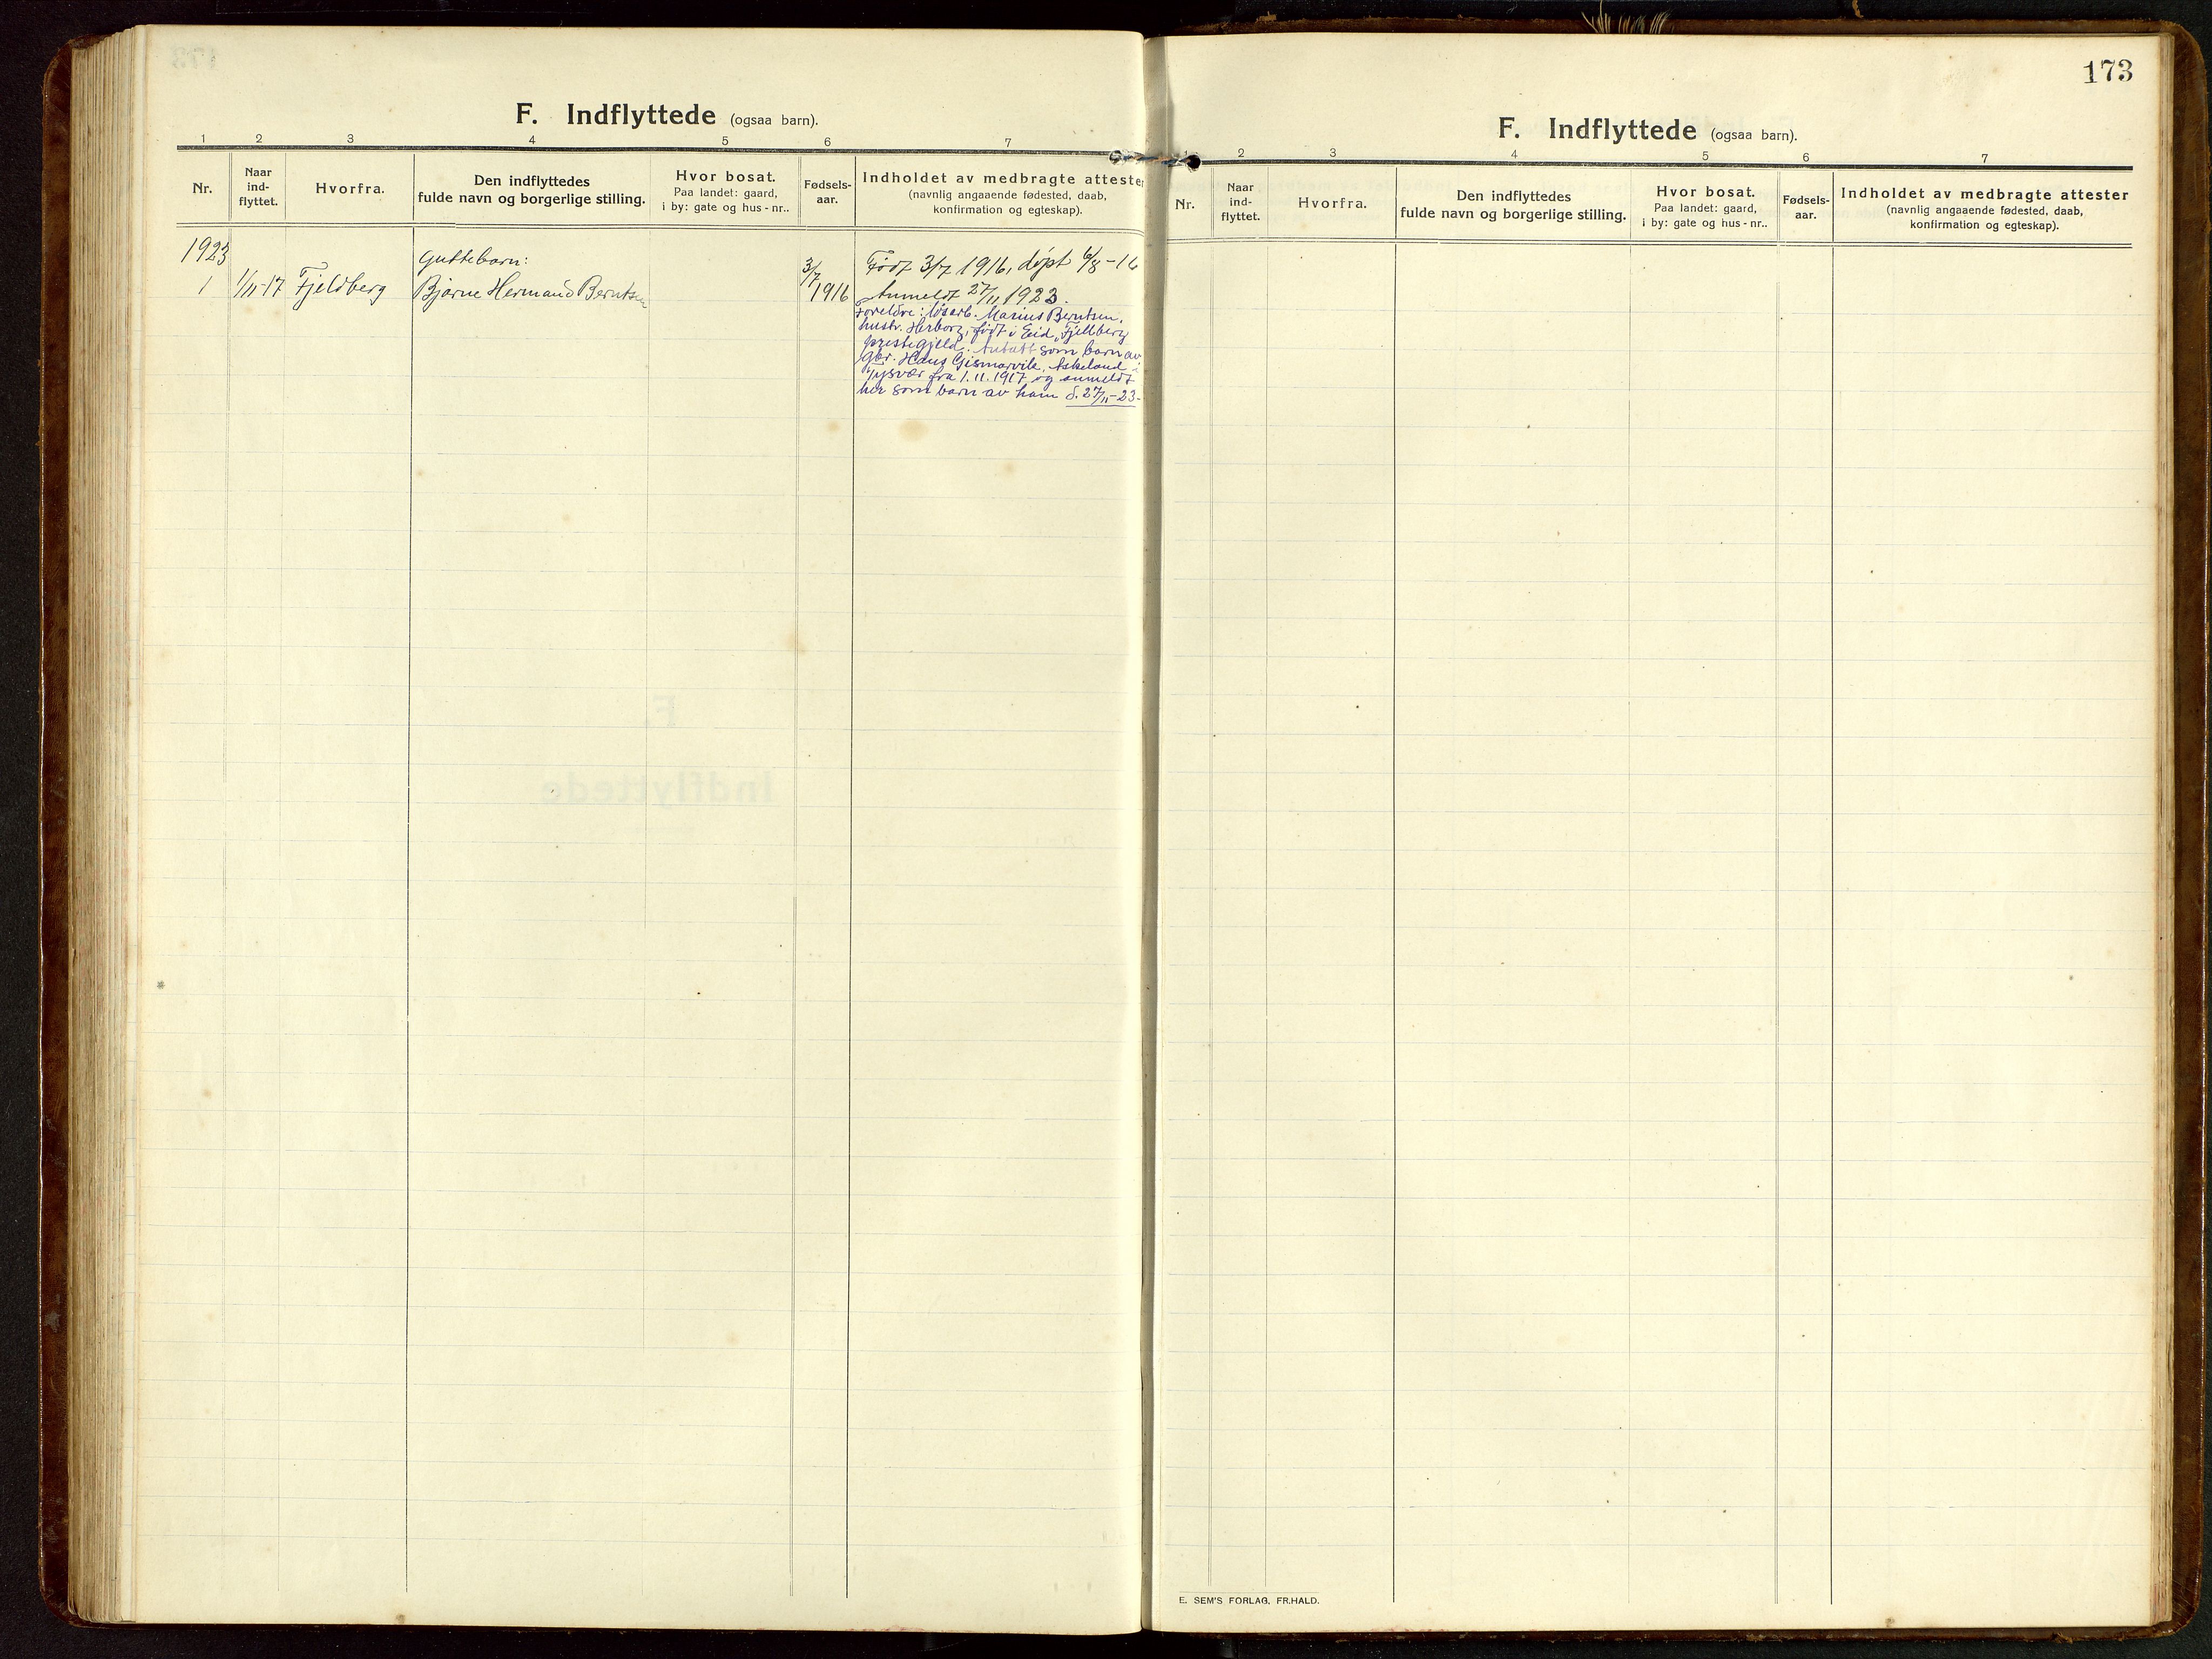 F. Indflyttede (ogsaa barn).
1 2 3 4 5 6 7
Nr. Naar ind-flyttet. Hvorfra. Den indflyttedes fulde navn og borgerlige stilling. Hvor bosat. Paa landet: gaard, i by: gate og hus-nr.. Fødsels-aar. Indholdet av medbragte attester (navnlig angaaende fødested, daab, konfirmation og egteskap).
1923
Guttebarn:
1 1/11-17 Fjeldberg Bjarne Hermand Berntsen 3/7 1916
Født 3/7 1916, døpt 6/8-16
Anmeldt 27/11 1923.
Foreldre: løsarb. Marius Berntsen,
hustr. Herborg, født i Eid, Fjellberg
prestegjeld. Antatt som barn av
gbr. Hans Gismarvik, Askeland i
Tysvær fra 1.11.1917 og anmeldt
her som barn av ham d. 27/11-23.
173
F. Indflyttede (ogsaa barn).
1 2 3 4 5 6 7
Nr. Naar ind-flyttet. Hvorfra. Den indflyttedes fulde navn og borgerlige stilling. Hvor bosat. Paa landet: gaard, i by: gate og hus-nr.. Fødsels-aar. Indholdet av medbragte attester (navnlig angaaende fødested, daab, konfirmation og egteskap).
E. SEM'S FORLAG, FR.HALD.